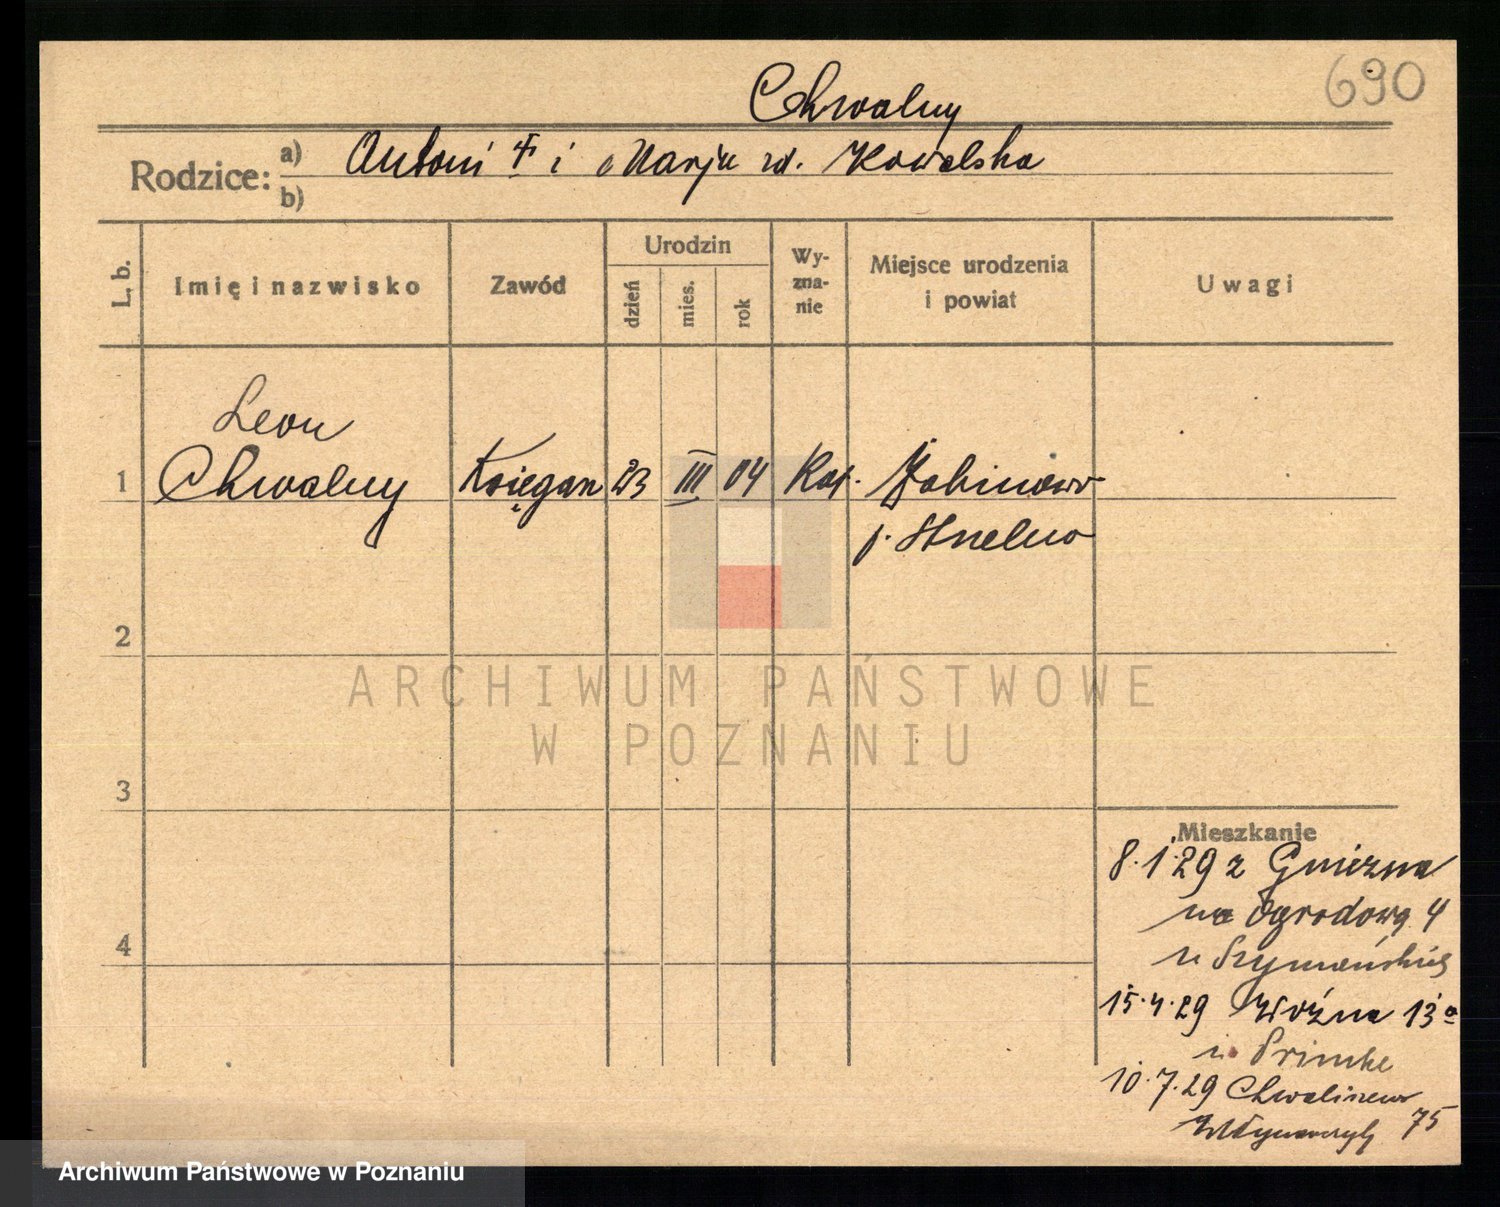 690
Chwalny
Rodzice: a) Antoni † i Marja zd. Kowalska
b)
L. b. Imię i nazwisko Zawód Urodzin dzień mies. rok Wy-zna-nie Miejsce urodzenia i powiat Uwagi
Leon
1 Chwalny Księgarz 23 III 04 Kat.
p. Strzelno
2
ARCHIWUM PAŃSTWOWE
W POZNANIU
3
Mieszkanie
8.1.29 z Gniezna
na Ogrodową 4
u Szymańskiej
4
15.4.29 Woźna 13a
u
10.7.29 Chwaliszewo
75
Archiwum Państwowe w Poznaniu